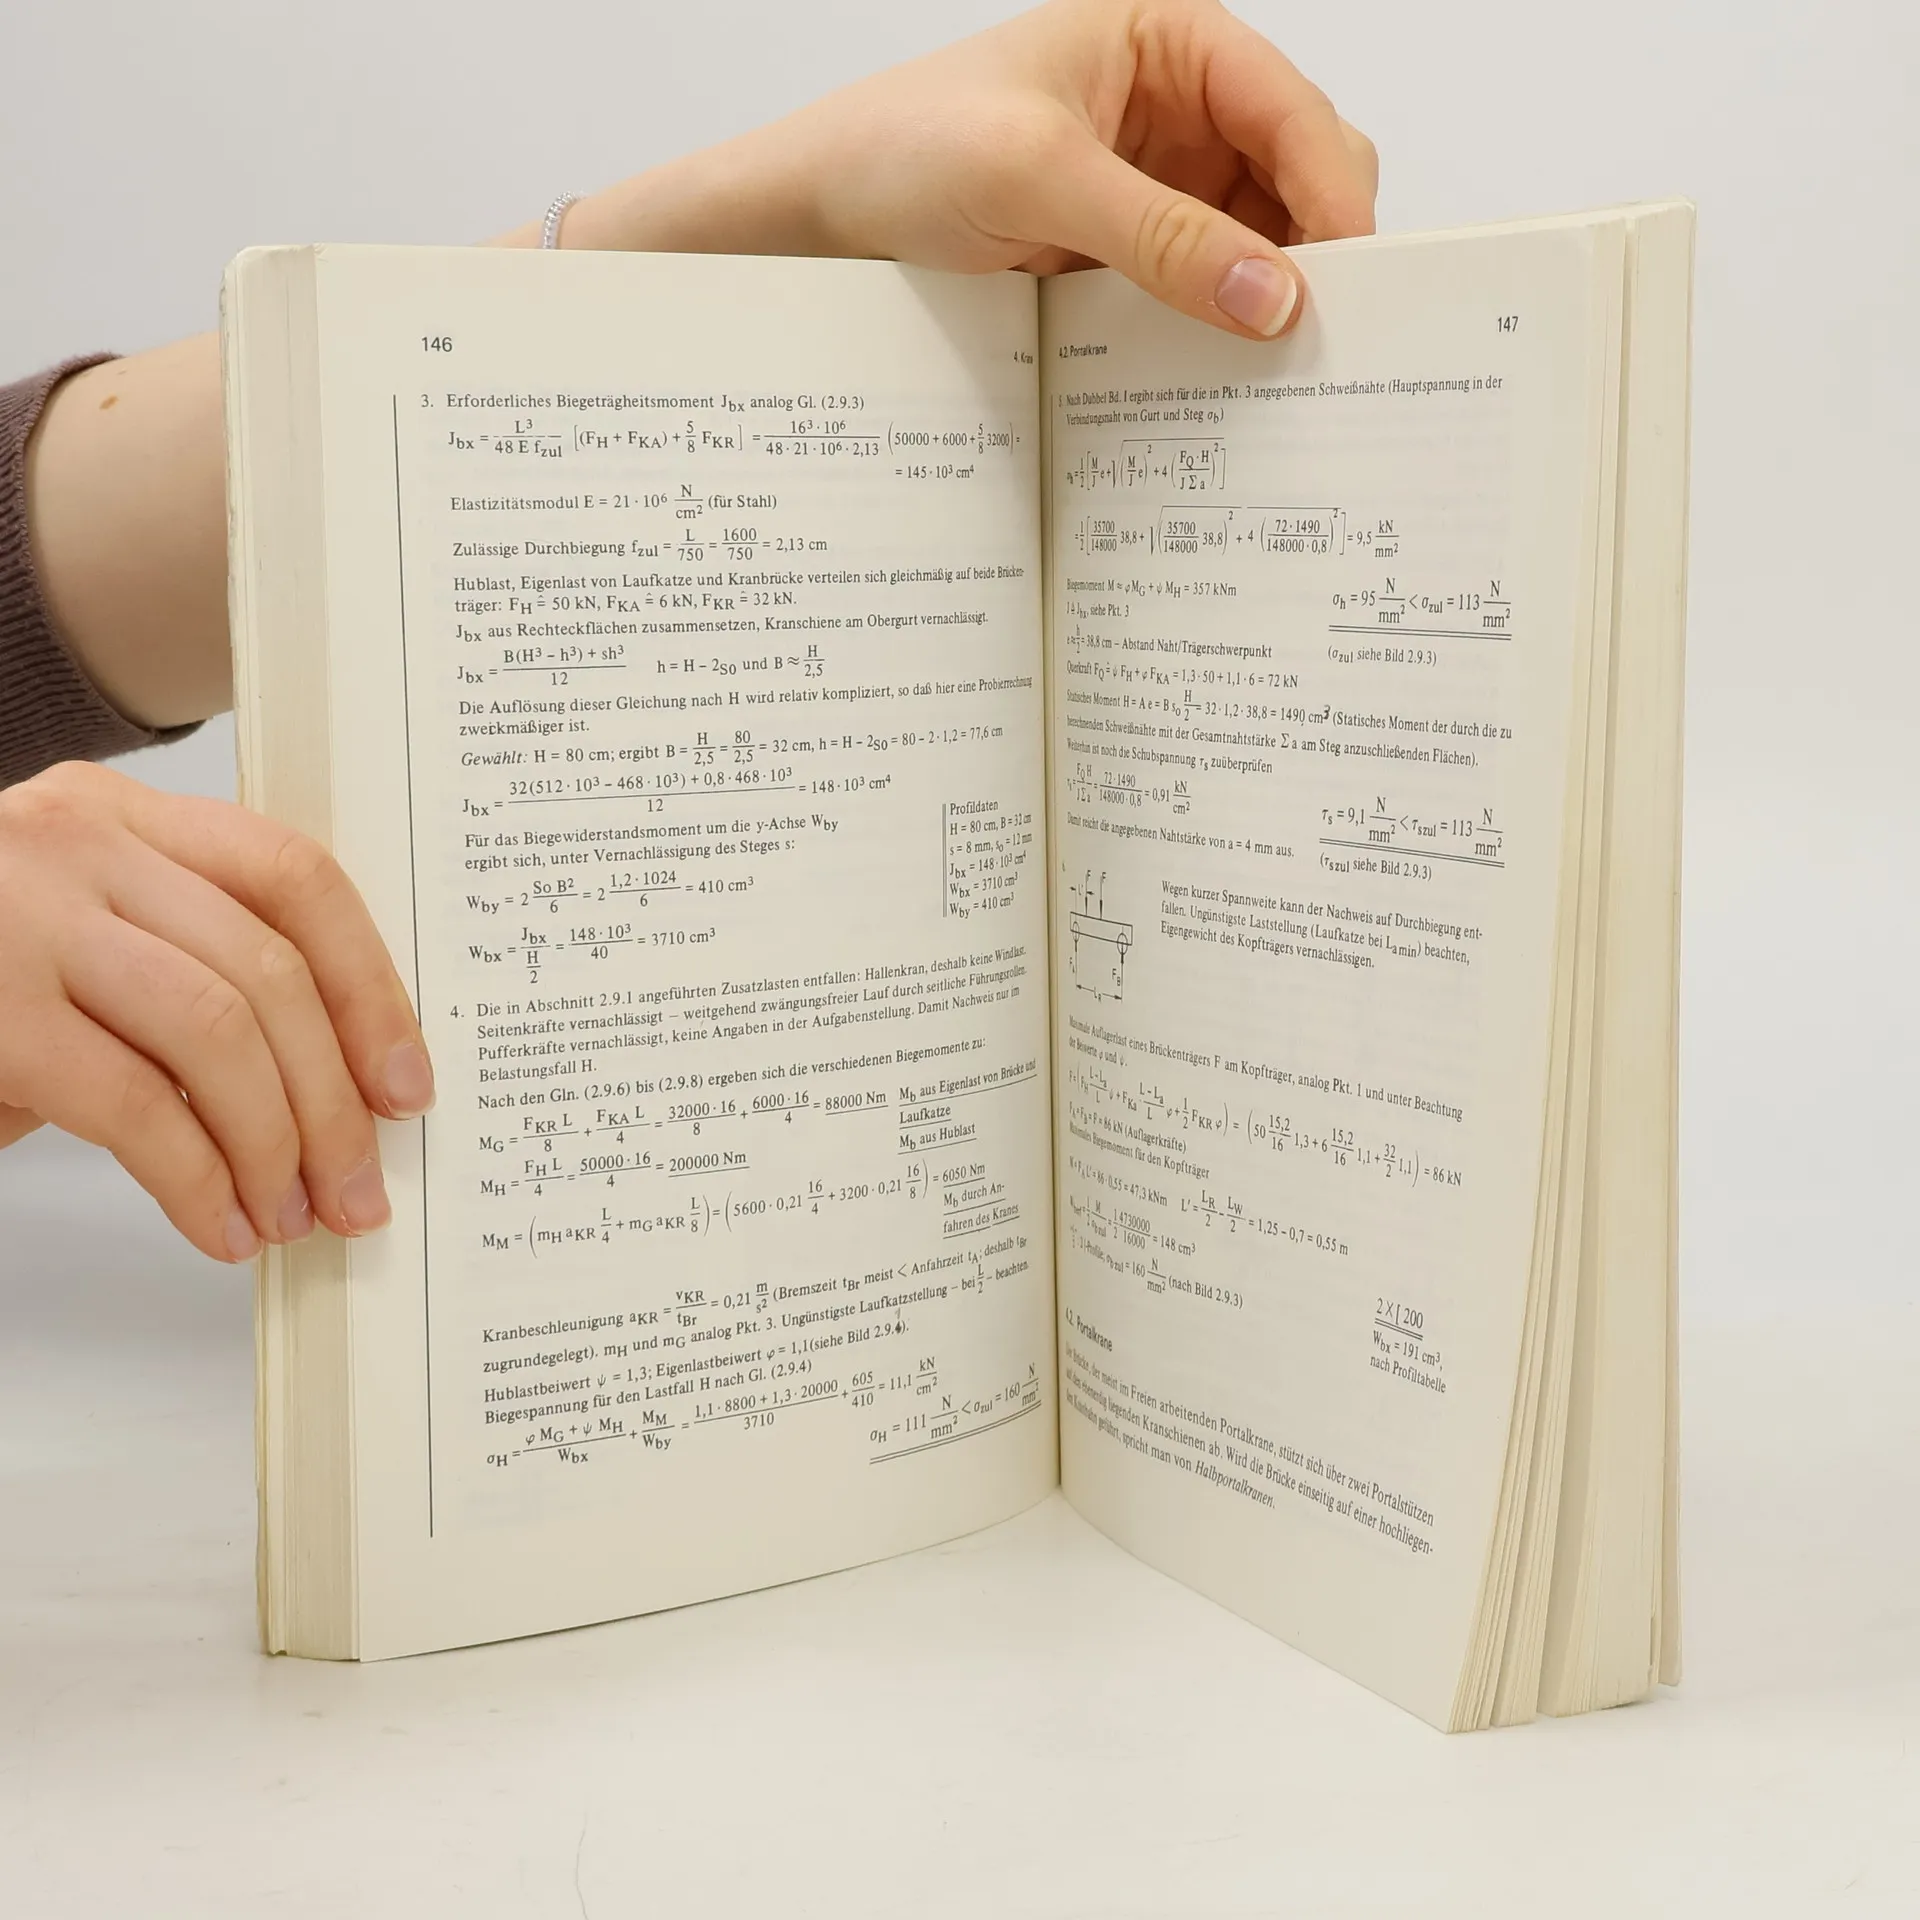 146
4. Krane
3. Erforderliches Biegeträgheitsmoment J_bx analog Gl. (2.9.3)
J_bx = L³ / (48 E f_zul) [(F_H + F_KA) + 5/8 F_KR] = 16³ · 10⁶ / (48 · 21 · 10⁶ · 2,13) (50000 + 6000 + 5/8 32000) =
= 145 · 10³ cm⁴
Elastizitätsmodul E = 21 · 10⁶ N/cm² (für Stahl)
Zulässige Durchbiegung f_zul = L/750 = 1600/750 = 2,13 cm
Hublast, Eigenlast von Laufkatze und Kranbrücke verteilen sich gleichmäßig auf beide Brücken-
träger: F_H ≙ 50 kN, F_KA ≙ 6 kN, F_KR ≙ 32 kN.
J_bx aus Rechteckflächen zusammensetzen, Kranschiene am Obergurt vernachlässigt.
J_bx = (B(H³ − h³) + sh³) / 12   h = H − 2s₀ und B ≈ H/2,5
Die Auflösung dieser Gleichung nach H wird relativ kompliziert, so daß hier eine Probierrechnung
zweckmäßiger ist.
Gewählt: H = 80 cm; ergibt B = H/2,5 = 80/2,5 = 32 cm, h = H − 2s₀ = 80 − 2 · 1,2 = 77,6 cm
J_bx = (32(512 · 10³ − 468 · 10³) + 0,8 · 468 · 10³) / 12 = 148 · 10³ cm⁴
Für das Biegewiderstandsmoment um die y-Achse W_by
ergibt sich, unter Vernachlässigung des Steges s:
W_by = 2 (So B²)/6 = 2 (1,2 · 1024)/6 = 410 cm³
W_bx = J_bx / (H/2) = 148 · 10³ / 40 = 3710 cm³
Profildaten
H = 80 cm, B = 32 cm
s = 8 mm, s₀ = 12 mm
J_bx = 148 · 10³ cm⁴
W_bx = 3710 cm³
W_by = 410 cm³
4. Die in Abschnitt 2.9.1 angeführten Zusatzlasten entfallen: Hallenkran, deshalb keine Windlast.
Seitenkräfte vernachlässigt – weitgehend zwängungsfreier Lauf durch seitliche Führungsrollen.
Pufferkräfte vernachlässigt, keine Angaben in der Aufgabenstellung. Damit Nachweis nur im
Belastungsfall H.
Nach den Gln. (2.9.6) bis (2.9.8) ergeben sich die verschiedenen Biegemomente zu:
M_G = F_KR L / 8 + F_KA L / 4 = 32000 · 16 / 8 + 6000 · 16 / 4 = 88000 Nm   M_b aus Eigenlast von Brücke und
Laufkatze
M_H = F_H L / 4 = 50000 · 16 / 4 = 200000 Nm   M_b aus Hublast
M_M = (m_H a_KR L/4 + m_G a_KR L/8) = (5600 · 0,21 16/4 + 3200 · 0,21 16/8) = 6050 Nm
M_b durch An-
fahren des Kranes
Kranbeschleunigung a_KR = v_KR / t_Br = 0,21 m/s² (Bremszeit t_Br meist < Anfahrzeit t_A; deshalb t_Br
zugrundegelegt). m_H und m_G analog Pkt. 3. Ungünstigste Laufkatzstellung – bei L/2 – beachten.
Hublastbeiwert ψ = 1,3; Eigenlastbeiwert φ = 1,1 (siehe Bild 2.9.).
Biegespannung für den Lastfall H nach Gl. (2.9.4)
σ_H = (φ M_G + ψ M_H) / W_bx + M_M / W_by = (1,1 · 8800 + 1,3 · 20000) / 3710 + 605/410 = 11,1 kN/cm²
σ_H = 111 N/mm² < σ_zul = 160 N/mm²
4.2 Portalkrane
147
5. Nach Dubbel Bd. I ergibt sich für die in Pkt. 3 angegebenen Schweißnähte (Hauptspannung in der
Verbindungsnaht von Gurt und Steg σ_h)
σ_h = 1/2 [M/J e + √((M/J e)² + 4 (F_Q · H / (J Σ a))²)]
= 1/2 [35700/148000 38,8 + √((35700/148000 38,8)² + 4 (72 · 1490 / (148000 · 0,8))²)] = 9,5 kN/mm²
Biegemoment M ≈ φ M_G + ψ M_H = 357 kNm
J ≙ J_bx, siehe Pkt. 3
σ_h = 95 N/mm² < σ_zul = 113 N/mm²
e ≈ h/2 = 38,8 cm – Abstand Naht/Trägerschwerpunkt
(σ_zul siehe Bild 2.9.3)
Querkraft F_Q ≙ ψ F_H + φ F_KA = 1,3 · 50 + 1,1 · 6 = 72 kN
Statisches Moment H = A e = B s₀ H/2 = 32 · 1,2 · 38,8 = 1490 cm³ (Statisches Moment der durch die zu
berechnenden Schweißnähte mit der Gesamtnahtstärke Σ a am Steg anzuschließenden Flächen).
Weiterhin ist noch die Schubspannung τ_s zuüberprüfen
τ_s = F_Q H / (J Σ a) = 72 · 1490 / (148000 · 0,8) = 0,91 kN/cm²
τ_s = 9,1 N/mm² < τ_szul = 113 N/mm²
Damit reicht die angegebenen Nahtstärke von a = 4 mm aus.
(τ_szul siehe Bild 2.9.3)
F F
L'
F_A
F_B
L_a
Wegen kurzer Spannweite kann der Nachweis auf Durchbiegung ent-
fallen. Ungünstigste Laststellung (Laufkatze bei L_amin) beachten,
Eigengewicht des Kopfträgers vernachlässigen.
Maximale Auflagerlast eines Brückenträgers F am Kopfträger, analog Pkt. 1 und unter Beachtung
der Beiwerte φ und ψ.
F = (F_H (L−L_a)/L ψ + F_Ka · (L−L_a)/L φ + 1/2 F_KR φ) = (50 15,2/16 1,3 + 6 15,2/16 1,1 + 32/2 1,1) = 86 kN
F_A = F_B = F = 86 kN (Auflagerkräfte)
Maximales Biegemoment für den Kopfträger
M = F_A L' = 86 · 0,55 = 47,3 kNm   L' = L_R/2 − L_W/2 = 1,25 − 0,7 = 0,55 m
= 1/2 4730000/16000 = 148 cm³
[-Profile; σ_bzul = 160 N/mm² (nach Bild 2.9.3)
2 X [ 200
W_bx = 191 cm³,
nach Profiltabelle
4.2. Portalkrane
Die Brücke, der meist im Freien arbeitenden Portalkrane, stützt sich über zwei Portalstützen
auf den ebenerdig liegenden Kranschienen ab. Wird die Brücke einseitig auf einer hochliegen-
den Kranbahn geführt, spricht man von Halbportalkranen.